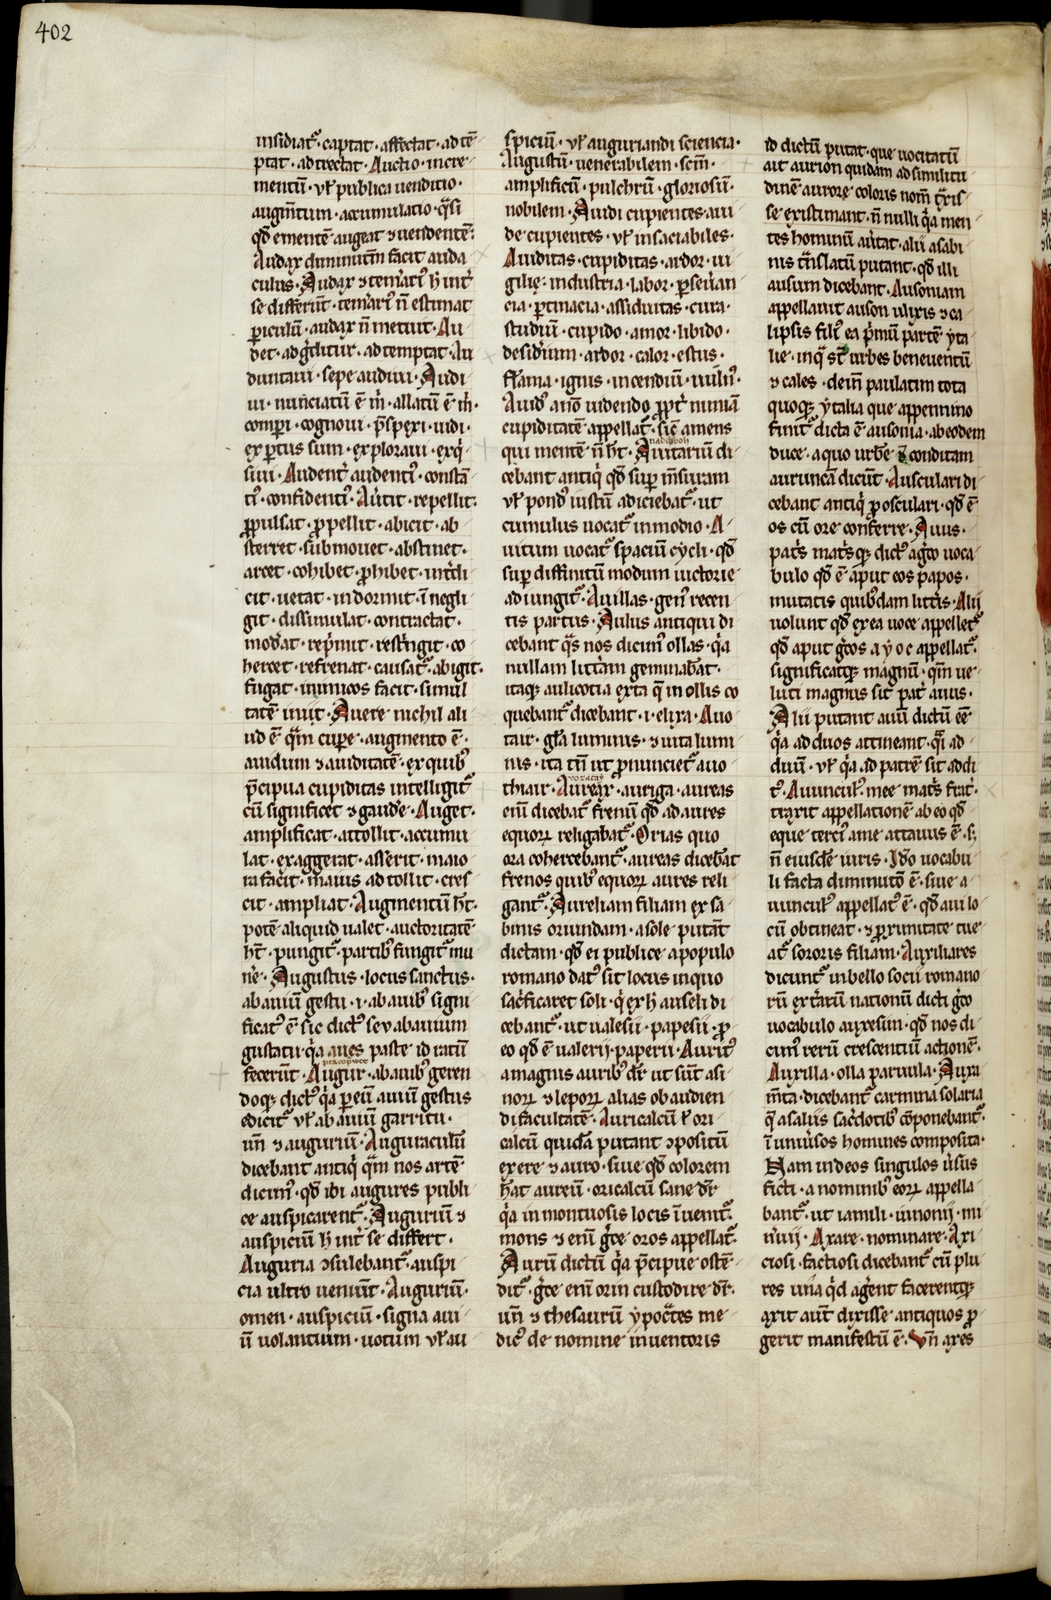 402
insidiat᷑. captat. affectat. ad tē
ptat. ad trectat. Auctio. incre
mentū. uł publica uenditio.
augm̄tum. accumulatio. q̇si
qđ ementē augeat ⁊ uendentē.
Audax diminutiū facit auda
culus. Audax ⁊ temˀarˀ h̄ int̓
se differūt. temˀarˀ n̄ estimat
ꝑiculū. audax n̄ metuit. Au
det. adg̓ditur. ad temptat. Au
dientaui. sepe audiui. Audi
ui. nunciatū ē m̓. allatū ē m̓.
comꝑi. cognoui. ꝑspexi. uidi.
exꝑtus sum. exploraui. exq̓
siui. Audent̓. audenti᷒. constā
ti᷒. confidenti᷒. Au̓tit. repellit.
ꝓpulsat. ꝓpellit. abicit. ab
sterret. submouet. abstinet.
arcet. cohibet. ꝓhibet. int̓di
cit. uetat. indormit. ī negli
git. dissimulat. contractat.
modˀat. rep̓mit. restͥngit. co
hercet. refrenat. causat᷑. abigit.
fugat. inimicos facit. simul
tatē iniit. Auere nichil ali
ud ē q̄m cuꝑe. augmento ē.
auidum ⁊ auiditatē. ex quib᷒
p̄cipua cupiditas intelligit᷑
cū significet ⁊ gaudˀe. Auget.
amplificat. attollit. accumu
lat. exaggerat. asserit. maio
ra facit. in aius ad tollit. cres
cit. ampliat. Augmentū h̄t.
potē aliquid ualet. auctoritatē
h̄t. pungit᷑. partib᷒ fungit᷑ mu
nˀe. Augustus. locus sanctus.
ab auiū gestu. i. ab auib᷒ signi
ficat᷒ ē sic dict᷒ seu ab auium
gustatu. q̓a aues paste id ratū
fecerūt. Augur. ab auib᷒ geren
doqꝫ dict᷒ q̓a ꝑ eū auiū gestus
edicit᷑ uł ab auiū garritu.
un̄ ⁊ auguriū. Auguraculū
dicebant antiq̓ q̄m nos artē
dicim᷒. qđ ibi augures publi
ce auspicarent᷑. Auguriū ⁊
auspiciū h̄ int̓ se differt.
Auguria ꝯsulebant᷑. auspi
cia ultro ueniūt. Auguriū.
omen. auspiciū. signa aui
ū uolantium. uotum uł au
spiciū. uł augurandi sciencia.
Augustū. uenerabilem. scm̄.
amplificū. pulchrū. gloriosū.
nobilem. Auidi cupientes. aui
de cupientes. uł insaciabiles.
Auiditas. cupiditas. ardor. ui
gilię. industria. labor. ꝑseu̓an
cia. ꝑtinacia. assiduitas. cura.
studiū. cupido. amor. libido.
desidˀium. ardor. calor. estus.
flāma. ignis. incendiū. uuln᷒.
Auid᷒ an̄o uidendo ꝓpt̓ nimiā
cupiditatē appellat᷑. sic̄ amens
qui mentē n̄ h̄t. Auctariū di
cebant antiq̓ qđ suꝑ m̄suram
uł pond᷒ iustū adiciebat᷑. ut
cumulus uocat᷑ in modio. A
uitium uocat᷑ spaciū cycli. qđ
suꝑ diffinitū modum uictorie
adiungit᷑. Auillas. gen᷒ recen
tis partus. Aulus antiqui di
cebant q̓s nos dicim᷒ ollas. q̓a
nullam litt̓am geminabāt.
itaqꝫ aulicotia exta q̄ in ollis co
quebant᷑ dicebant. i. elixa. Auo
tair. gła luminis. ⁊ uita lumi
nis. ita tn̄ ut ꝓnunciet᷑ auo
thiair. Aureax. auriga. aureas
enī dicebāt frenū qđ ad aures
equoꝝ religabat᷑. Orias quo
ora cohercebant᷑. aureas dicebāt
frenos quib᷒ equoꝝ aures reli
gant᷑. Aureliam filiam ex sa
binis oriundam. a sole putāt
dictam. qđ ei publice a populo
romano dat᷒ sit locus in quo
sac̓ficaret soli. q̓ ex h̄ auseli di
cebant᷑. ut ualesii. papesii. ꝓ
eo qđ ē ualerij. paperii. Aurit᷒
a magnis aurib᷒ dr̄ ut sūt asi
noꝝ ⁊ lepoꝝ alias ob audien
di facultatē. Auricalcū ł ori
calcū quidā putant ꝯpositū
ex ere ⁊ auro. siue qđ colorem
h̄at aureū. oricalcū sane dr̄
q̓a in montuosis locis īuenit᷑.
mons ⁊ enī gͣce oros appellat᷑.
Aurū dictū q̓a p̄cipue ostē
dit᷑. gͣce enī orin custodire dr̄.
un̄ ⁊ thesaurū ypoc̓tes me
dic᷒ de nomine inuentoris
id dictū putat. que uocitatū
ait aurion quidam ad similitu
dinē aurore coloris nom̄ t̓xis
se existimant. n̄ nulli q̓a men
tes hominū au̓tat. alii a sabi
nis t̓nslatū putant. qđ illi
ausum dicebant. Ausoniam
appellauit auson ulixis ⁊ ca
lipsis fili᷒ ea p̓mū partē yta
lie. in q̓ sūt urbes beneuentū
⁊ cales. dein̄ paulatim tota
quoqꝫ ytalia que appennino
finit᷑ dicta ē ausonia. ab eodem
duce. a quo urbē ⁊ conditam
auruncā dicūt. Ausculari di
cebant antiq̓ ꝓ osculari. qđ ē
os cū ore conferre. Auus.
pat̓s mat̓sqꝫ dict᷒ ag̓co uoca
bulo qđ ē aput eos papos.
mutatis quibˀdam litt̓is. Alii
uolunt qđ ex ea uoce appellet᷑
qđ aput gͣcos a y o c appellat᷑.
significatqꝫ magnū. qm̄ ue
luti magnus sit pat̓ auus.
Alii putant auū dictū eē
q̓a ad duos attineant. q̓i ad
diuū. uł q̓a ad patrē sit addi
t᷒. Auuncul᷒. mee mat̓s frat̓.
traxit appellationē ab eo qđ
eque terci᷒ a me attauus ē. s;
n̄ eiusdē iuris. Ido uocabu
li facta diminutō ē. siue a
uuncul᷒ appellat᷒ ē. qđ aui lo
cū obtineat. ⁊ ꝓximitate tue
at᷑ sororis filiam. Auxiliares
dicunt᷑ in bello socii romano
rū ext̓arū nationū dicti gͣco
uocabulo auxesun. qđ nos di
cim᷒ rerū crescentiū actionē.
Auxilla. olla paruula. Auxa
m̄ta. dicebant᷑ carmina solaria
q̄ a saliis sac̓dotib᷒ cōponebant᷑.
ī uniu̓sos homines composita.
Nam in deos singulos u̓sus
ficti. a nominib᷒ eoꝝ appella
bant᷑. ut iamili. iunonij. mi
nˀuij. Axare. nominare. Axi
ciosi. factiosi dicebant᷑ cū plu
res unā q̓d aget̄ facerentqꝫ
axit aut̄ dixisse antiquos ꝓ
gerit manifestū ē. Un̄ axes